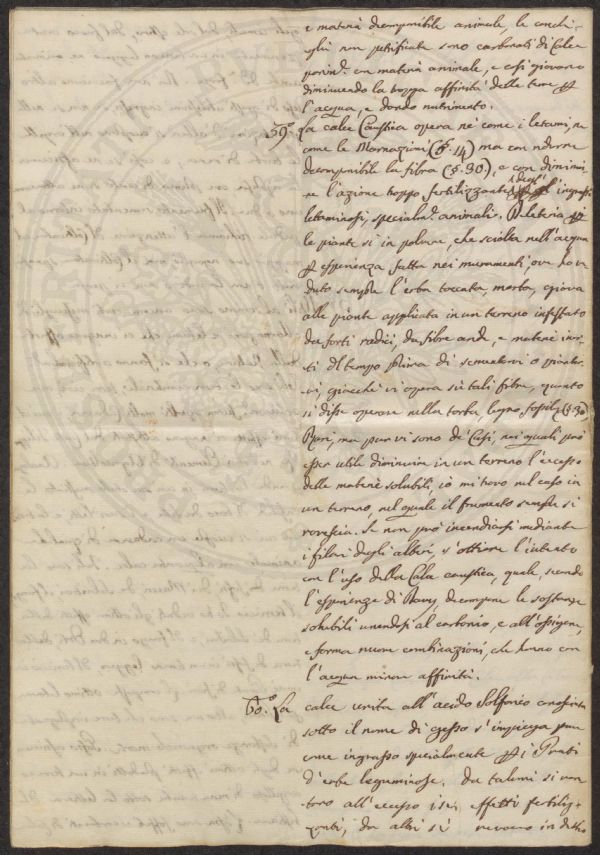 e materia decomponibile animale, le conchi-
glie non petrificate sono carbonati di Calce
con materia animale, e così giovano
diminuendo la troppa affinità delle terre
l'acqua, e dando nutrimento.
59.° La calce Caustica opera nè come i letami, ne
come le Marnazioni (§. 14) ma con ridurre
decomponibile la fibra (§. 30.), e con diminui-
re l'azione troppo fertilizzante degli ingrassi
letaminosi, specialm.e animali. Deleteria
le piante si in polvere che sciolta nell'acqua
esperienza fatta nei muramenti, ove ho ve-
duto sempre l'erba toccata, morta, giova
alle piante applicata in un terreno infestato
da forti radici, da fibre, e materie
tempo prima di sementarvi o piantar-
vi, giacchè vi opera su tali fibre, quanto
si disse operare nella torba, legno fossile (§. 30)
Rari, ma pur vi sono de' Casi, nei quali può
esser utile diminuire in un terreno l'eccesso
delle materie solubili, io mi trovo nel caso in
un terreno, nel quale il frumento sempre si
rovescia. Se non può incendiarsi mediante
i filari degli alberi, s'ottiene l'intento
con l'uso della Calce caustica, quale, secondo
l'esperienze di Davy, decompone le sostanze
solubili unendosi al carbonio, e all'ossigene,
e forma nuove combinazioni, che hanno con
l'acqua minore affinità.
60.° La calce unita all'acido Solforico conosciuta
sotto il nome di gesso s'impiega pure
come ingrasso specialmente i Prati
d'erbe leguminose. Da taluni si van-
tano all'eccesso i effetti fertiliz-
zanti, da altri si